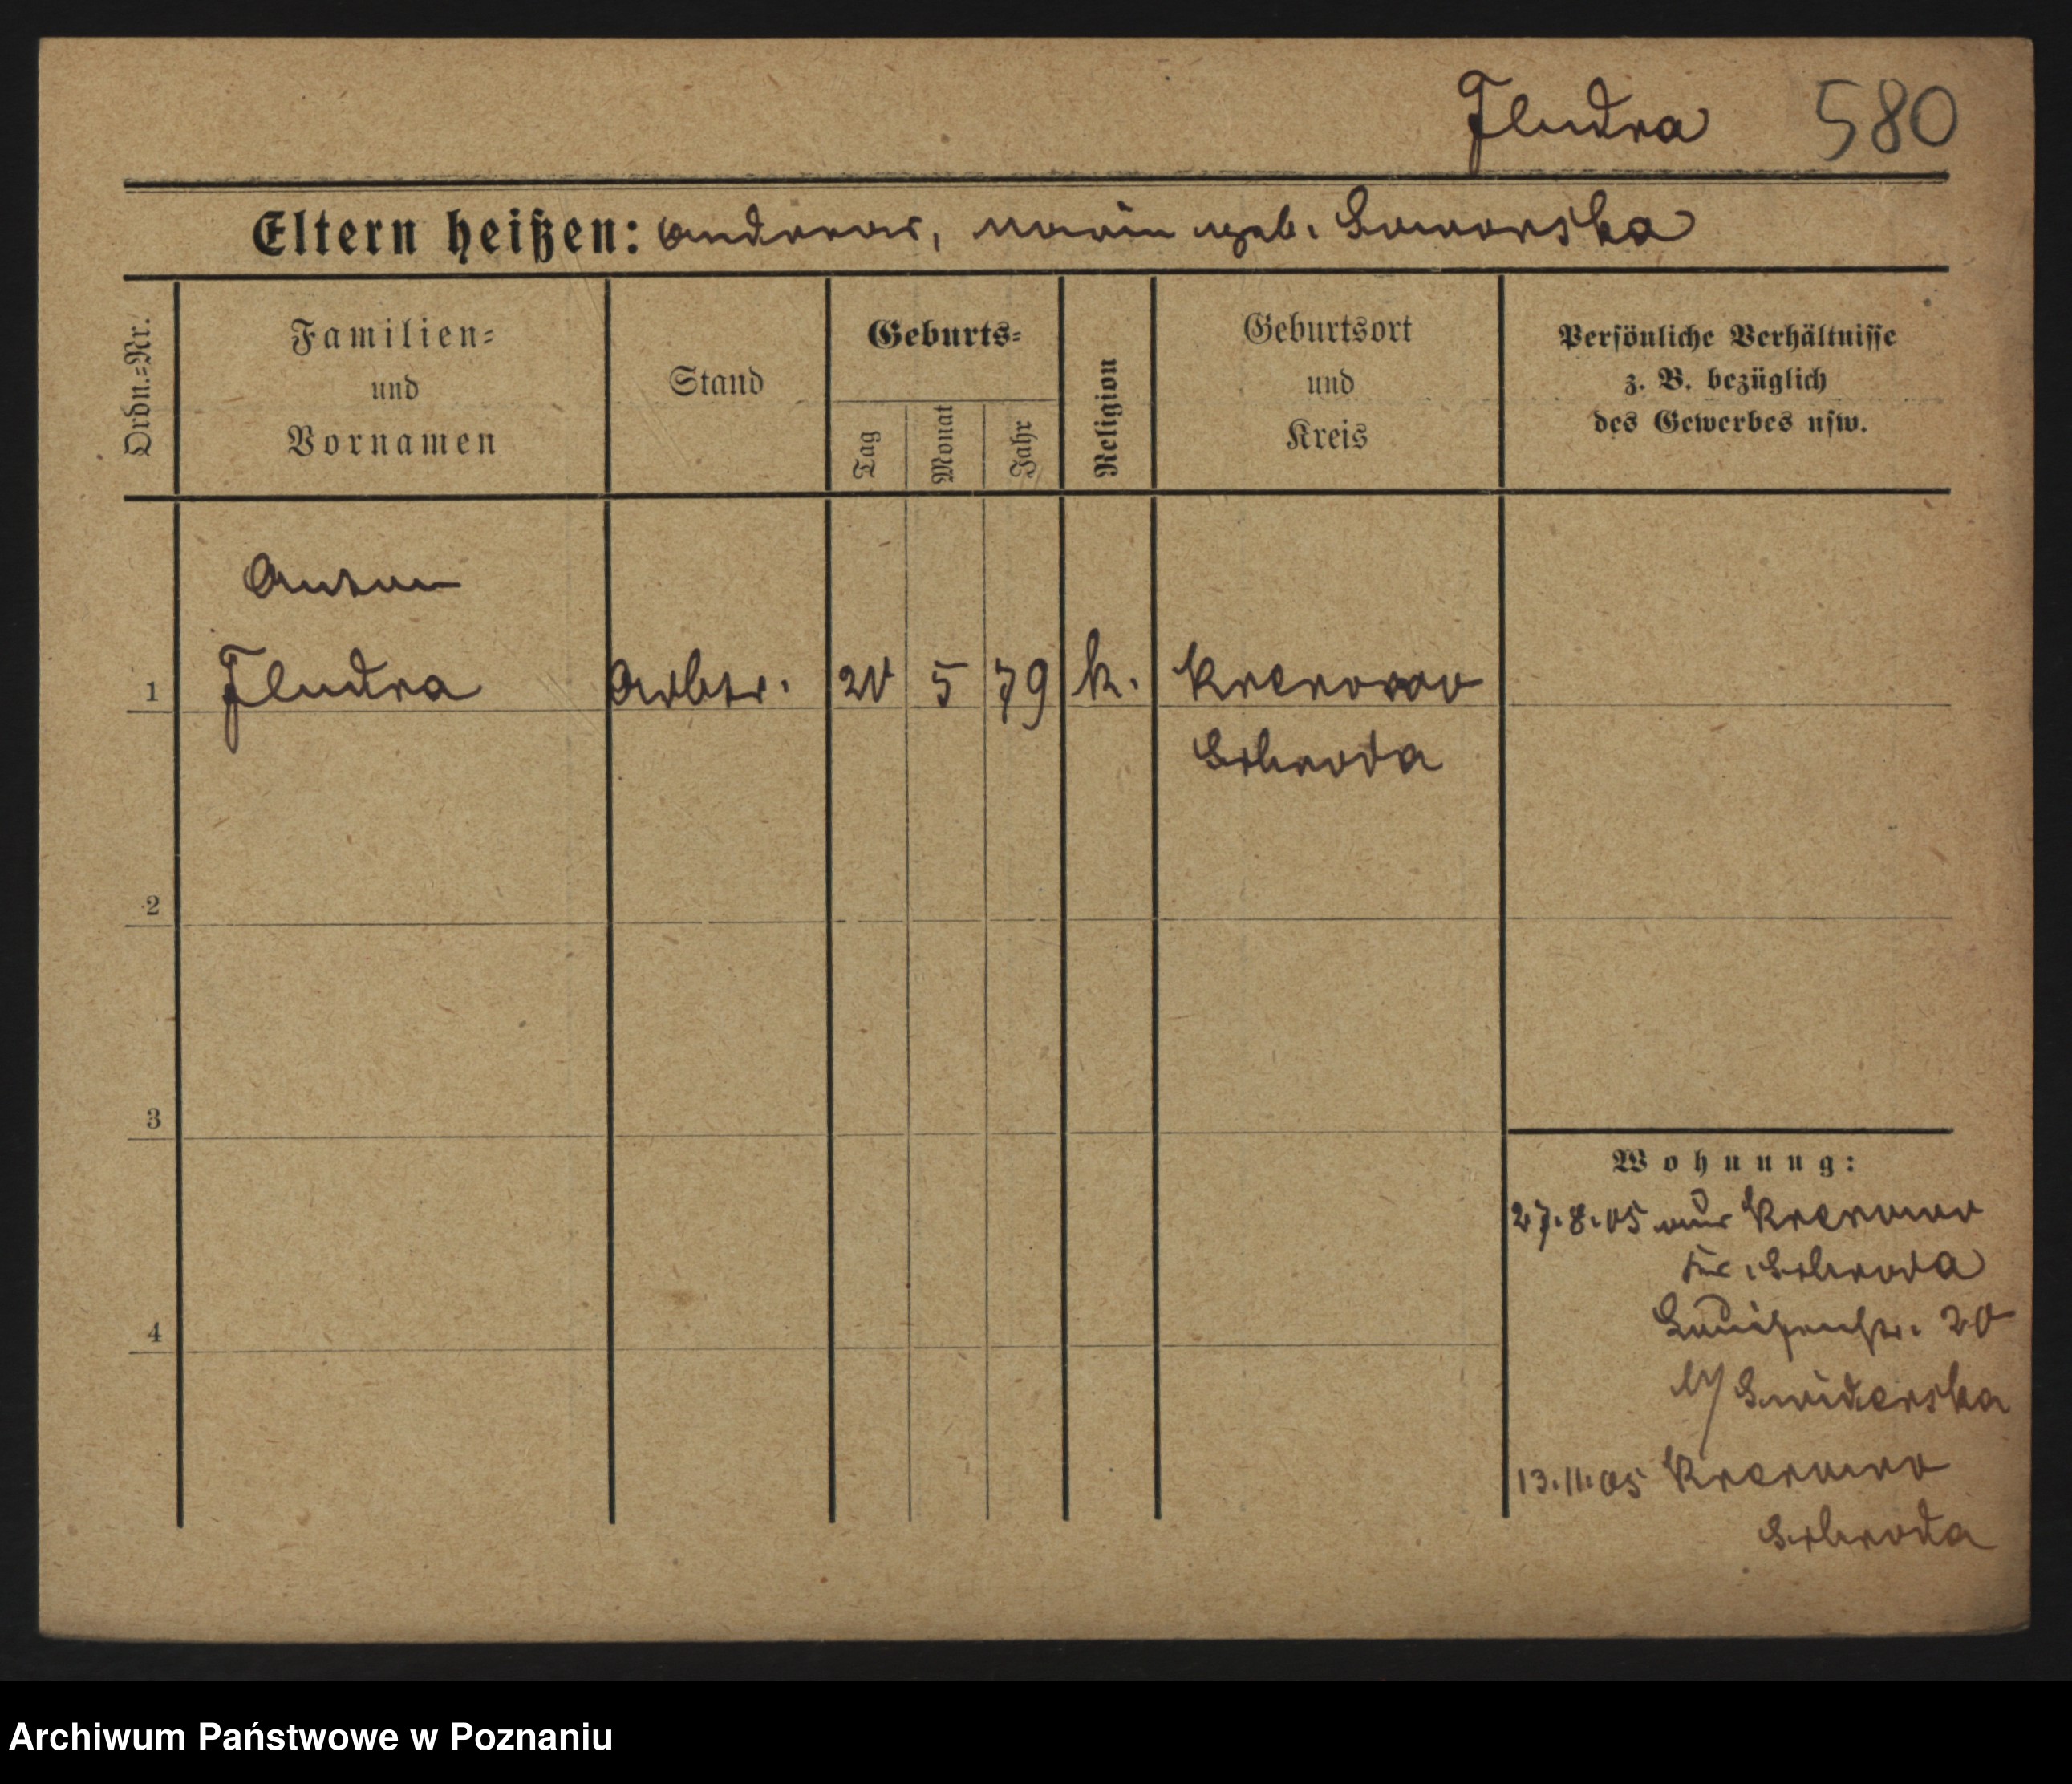 Fludra 580
Eltern heißen: Andreas, Marie geb. Jaworska
Ordn.=Nr.
Familien=
und
Vornamen
Stand
Geburts=
Tag
Monat
Jahr
Religion
Geburtsort
und
Kreis
Persönliche Verhältnisse
z. B. bezüglich
des Gewerbes usw.
Anton
1 Fludra Arbtr. 20 5 79 k. Krerowo
Schroda
2
3
4
Wohnung:
27.8.05 aus Krerowo
Kr. Schroda
Luisenstr. 20
b/ Swiderska
13.11.05 Krerowo
Schroda
Archiwum Państwowe w Poznaniu